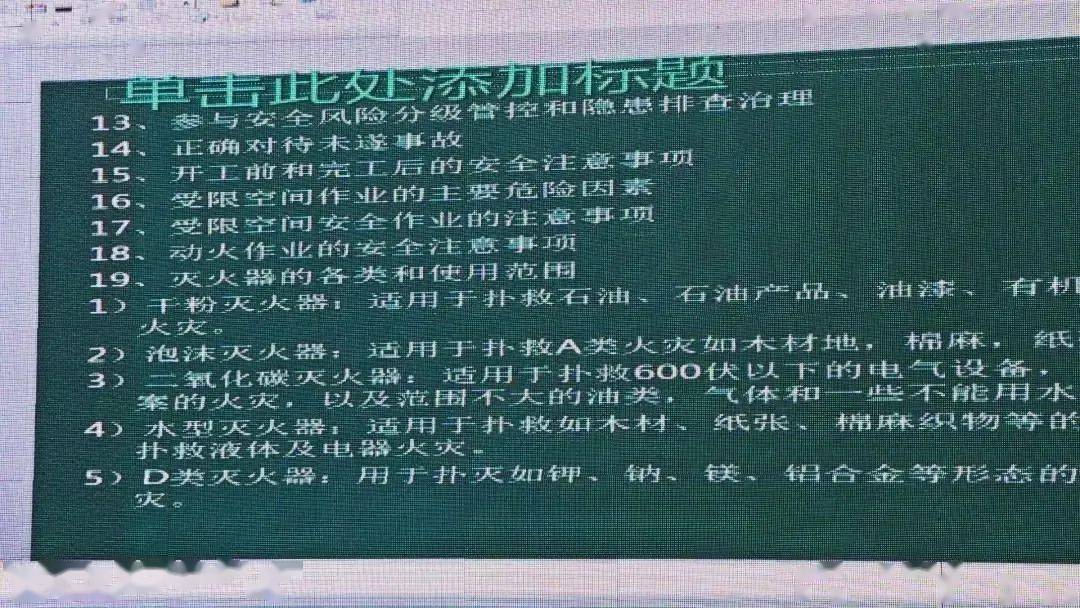 单击此处添加标题
13、参与安全风险分级管控和隐患排查治理
14、正确对待未遂事故
15、开工前和完工后的安全注意事项
16、受限空间作业的主要危险因素
17、受限空间安全作业的注意事项
18、动火作业的安全注意事项
19、灭火器的各类和使用范围
1）干粉灭火器：适用于扑救石油、石油产品、油漆、有机
火灾。
2）泡沫灭火器：适用于扑救A类火灾如木材地，棉麻，纸
3）二氧化碳灭火器：适用于扑救600伏以下的电气设备，
案的火灾，以及范围不大的油类，气体和一些不能用水
4）水型灭火器：适用于扑救如木材、纸张、棉麻织物等的
扑救液体及电器火灾。
5）D类灭火器：用于扑灭如钾、钠、镁、铝合金等形态的
灾。